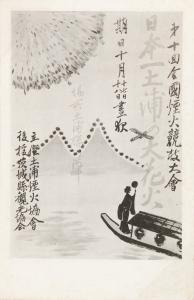 第十回全國煙火競技大會
日本一土浦の大花火
期日十月廿四日晝夜
主催土浦煙火協會
後援茨城縣觀光協會